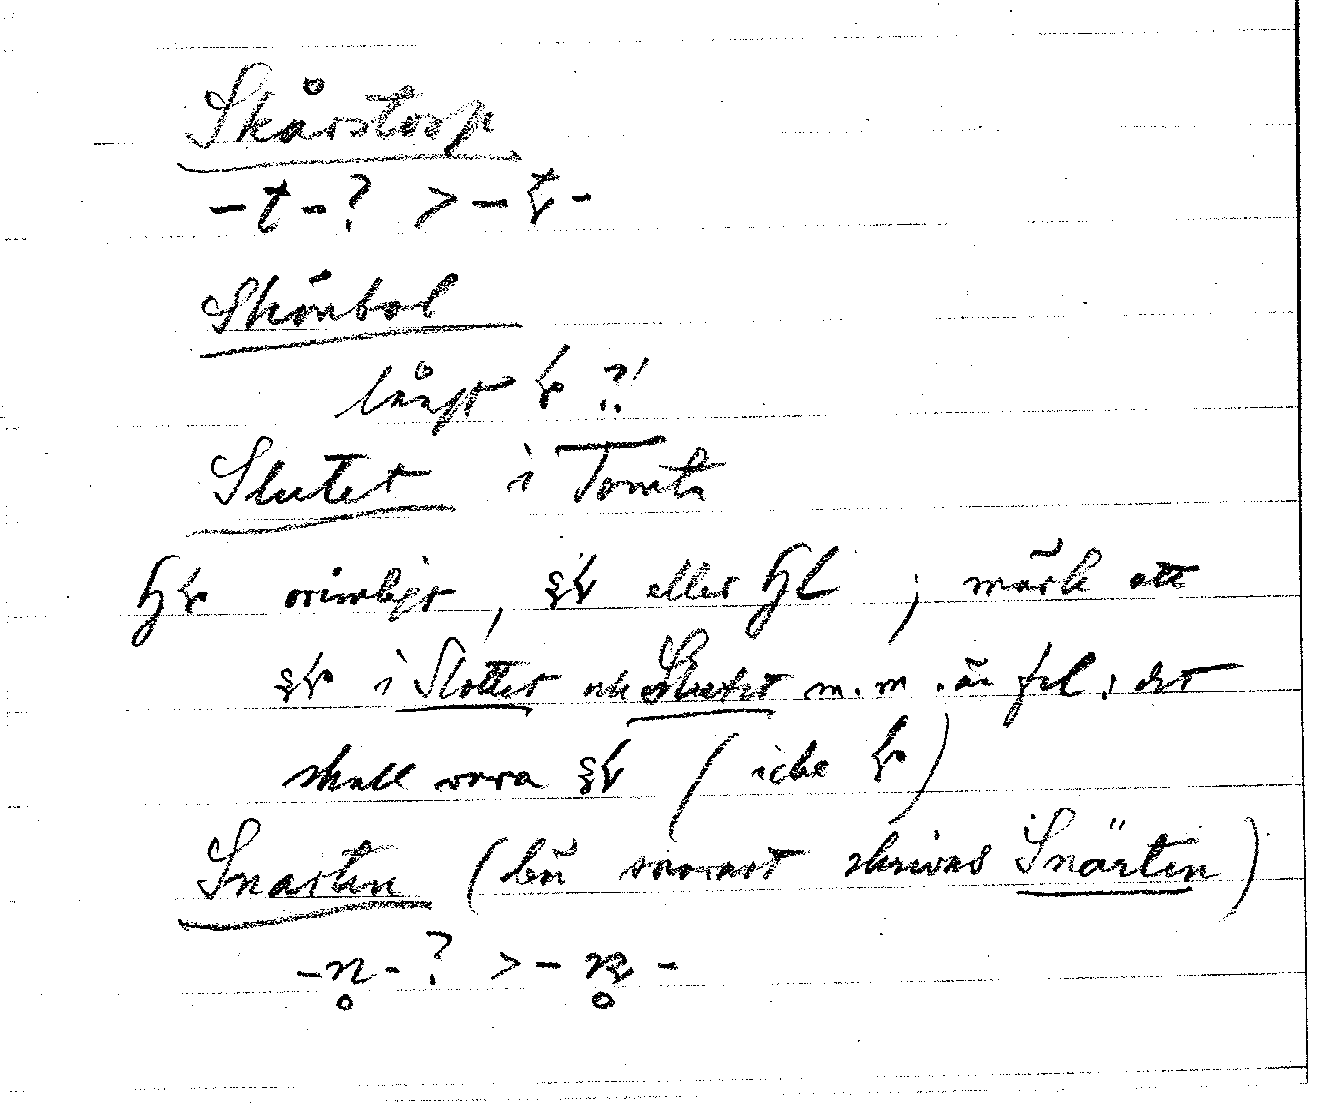 Skårstorp
-t-? > -ƫ-
Skönbol
långt ?!
Slutet i Tomta
orimligt, eller ; märk att
i Slottet och Slutet m.m. är fel; det
skall vara (icke )
Snarten (bör snarast skrivas Snärten)
-n̥-? > -